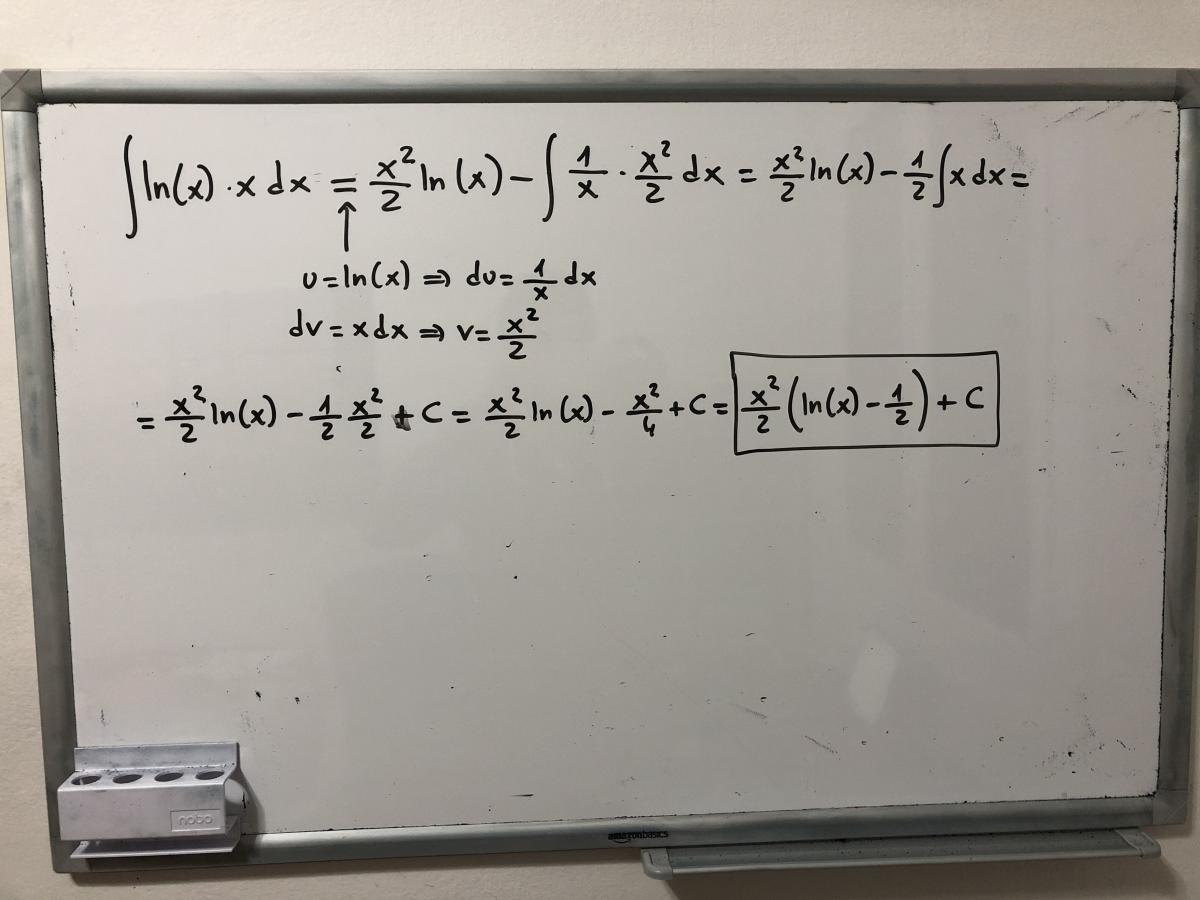 ∫ ln(x) · x dx = x²/2 ln(x) − ∫ 1/x · x²/2 dx = x²/2 ln(x) − 1/2 ∫ x dx =
↑
u = ln(x) ⇒ du = 1/x dx
dv = x dx ⇒ v = x²/2
= x²/2 ln(x) − 1/2 x²/2 + C = x²/2 ln(x) − x²/4 + C = x²/2 (ln(x) − 1/2) + C
nobo
amazonbasics